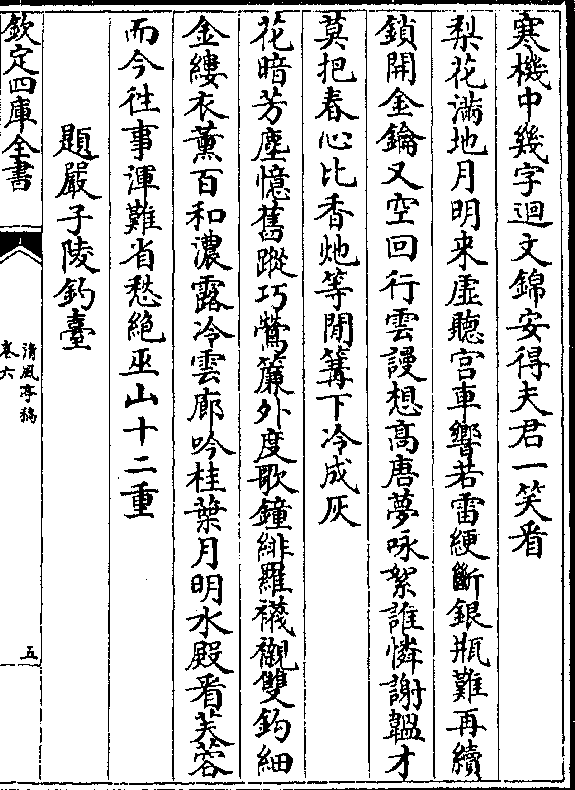 寒機中幾字迴文錦安得夫君一笑看
梨花滿地月明来虛聽宫車響若雷綆斷銀瓶難再續
鎖開金鑰又空回行雲謾想髙唐夢咏絮誰憐謝韞才
莫把春心比香灺等閒篝下冷成灰
花暗芳塵憶舊蹤巧鶯簾外度歌鐘緋羅襪襯雙鈎細
金縷衣薰百和濃露冷雲廊吟桂葉月明水殿看芙蓉
而今徃事渾難省愁絶巫山十二重
題嚴子陵釣臺
欽定四庫全書
清風亭稿
卷六
五